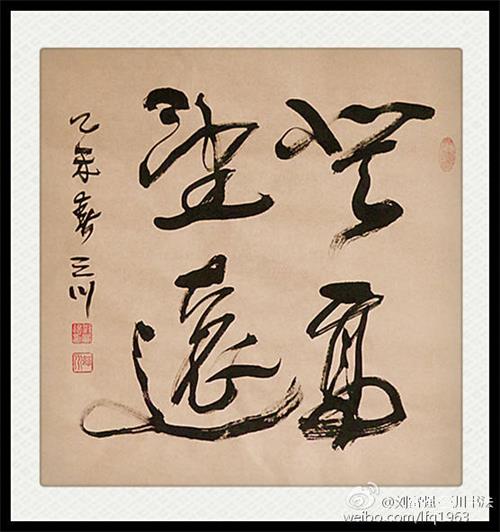 登高
望遠
乙未春 三川
weibo.com/lfq1963